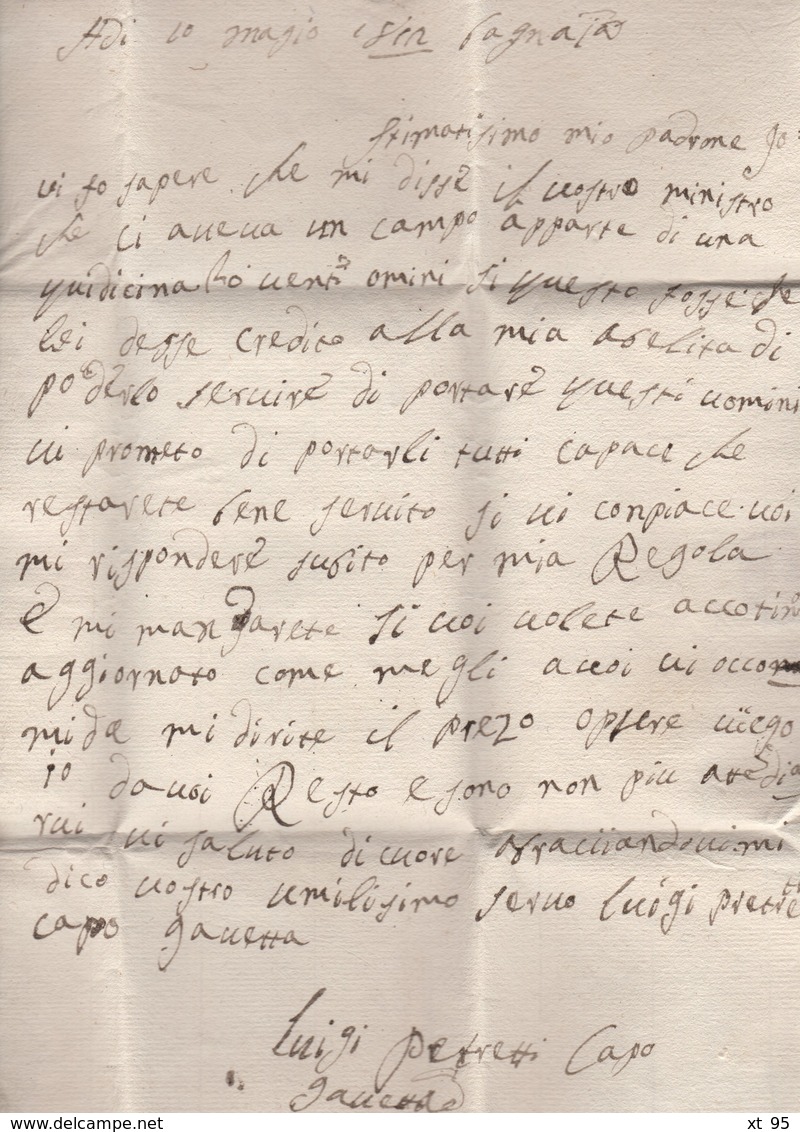 Adi 10 magio Bagnaia
Stimatisimo mio padrone Io
vi fo sapere che mi disse il vostro ministro
che ci aveva un campo apparte di una
quidicina ho venti omini si questo fosse che
lei desse credito alla mia abelita di
poderlo servire di portare questi uomini
vi prometo di portarli tutti capace che
restarete bene servito si vi conpiace voi
mi rispondere subito per mia Regola
E mi mandarete si voi volete accotimo
aggiornato come megli avoi vi occo
mida mi dirite il prezo opure vengo
io davoi Resto e sono non piu atedia
rvi vi saluto di cuore abracciandovi mi
dico vostro umilisimo servo luigi pretretti
capo gavetta
luigi Petretti Capo
gavetta
www.delcampe.net
xt 95